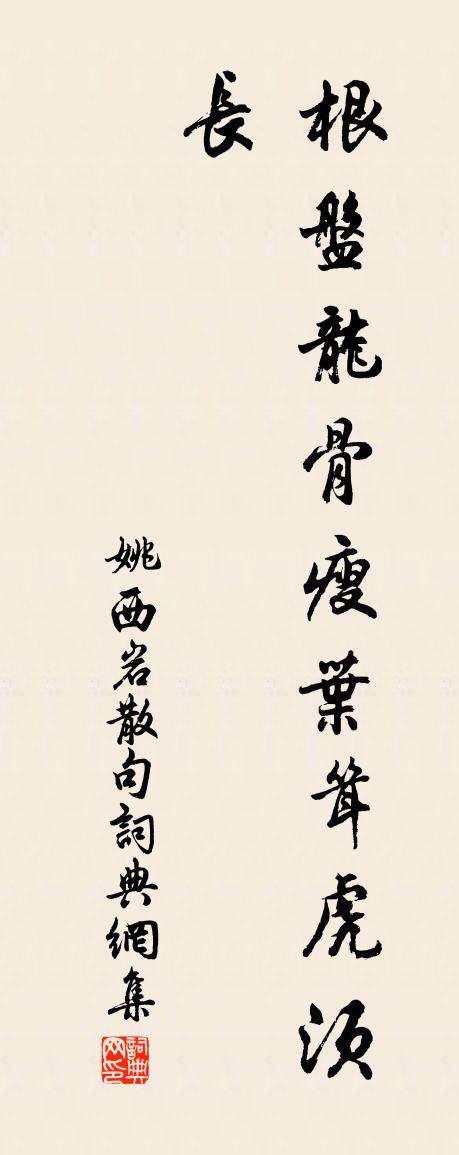 根盤龍骨瘦葉聳虎須
長
姚西岩散句詞典網集
詞典网印